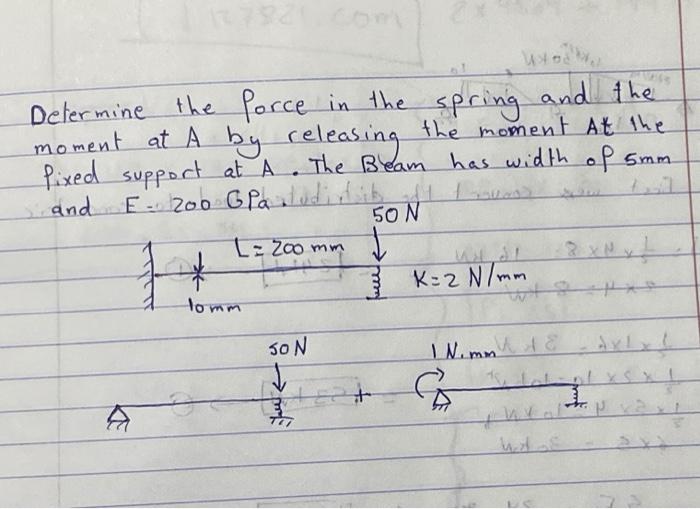 Determine the force in the spring and the
moment at A by releasing the moment At the
fixed support at A. The Beam has width of 5mm
and E = 200 GPa.
50 N
L = 200 mm
K = 2 N/mm
10 mm
50 N
1 N.mm
+